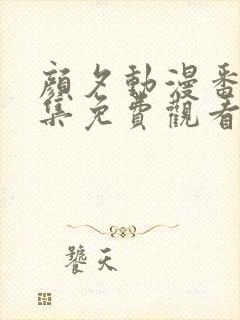 顔夕動漫番
集免費觀看
饕天